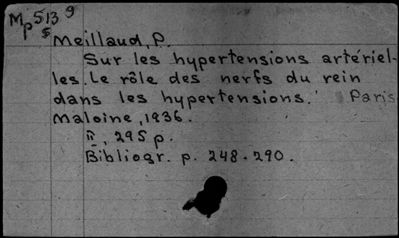 Mp513 9
s
Meillaud, P.
Sur les hypertensions artériel-
les. Le rôle des nerfs du rein
dans les hypertensions. Paris
Maloine, 1936.
II, 295 p.
Bibliogr. p. 248-290.